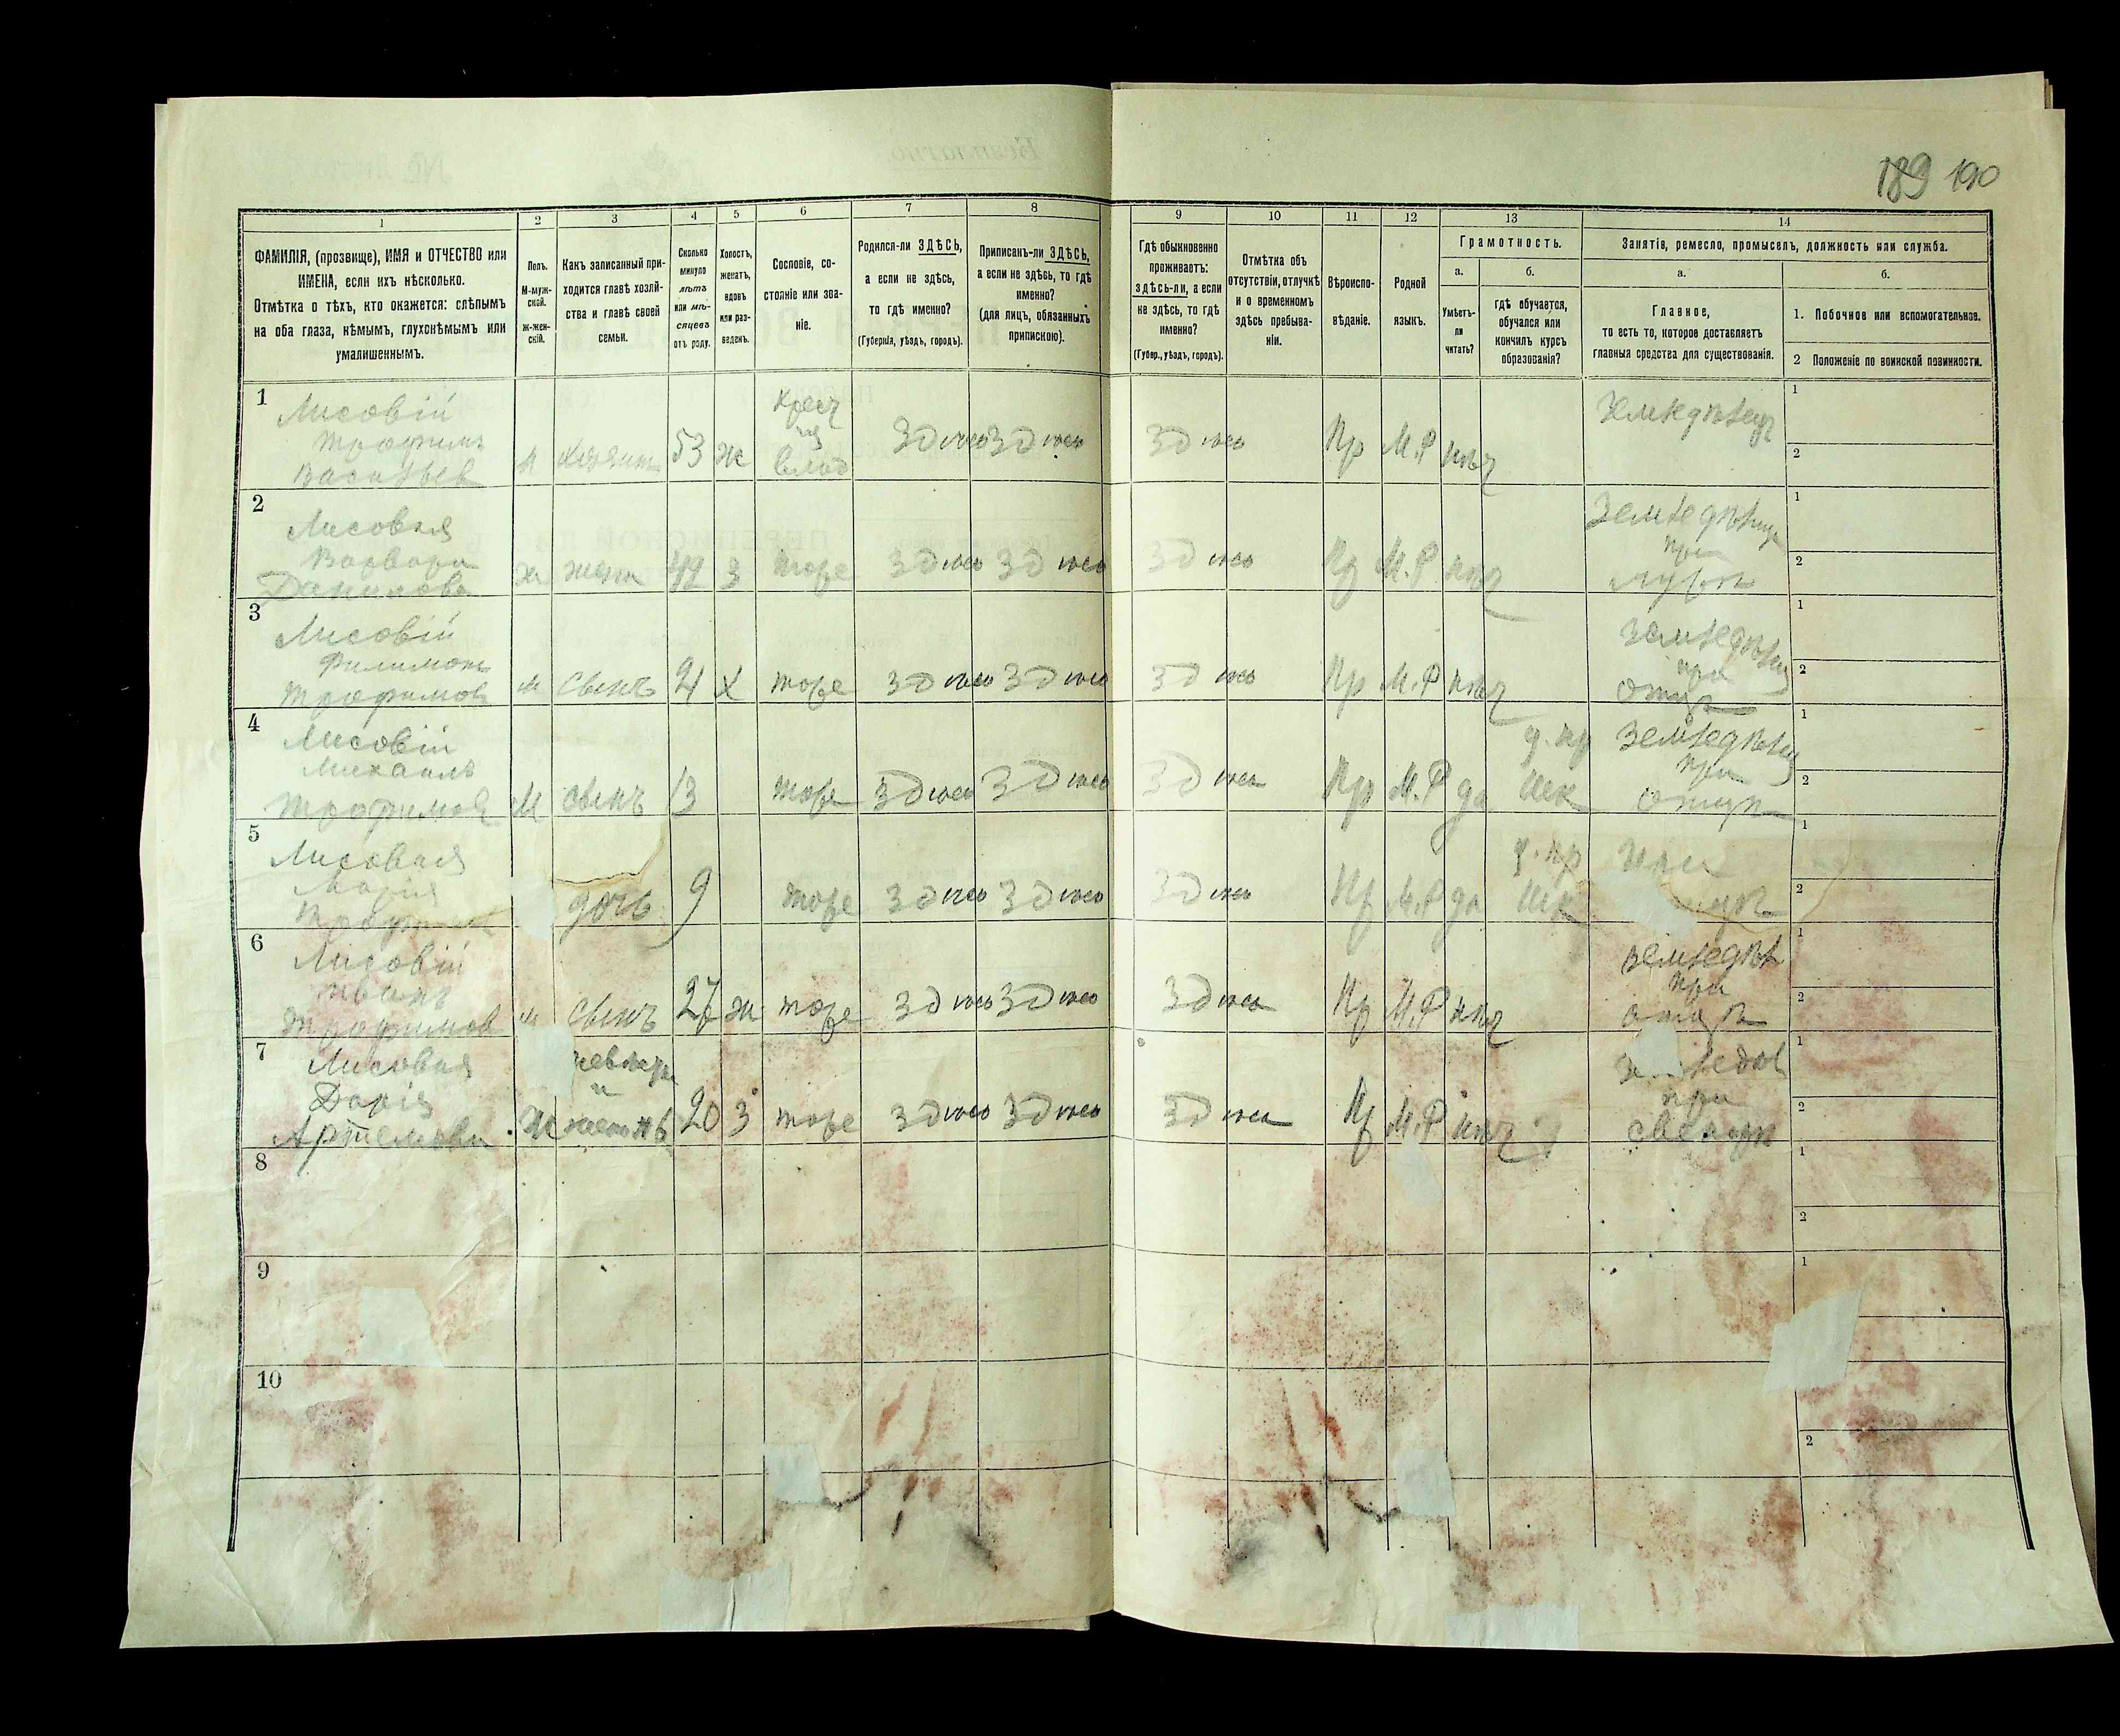 189 190
1 2 3 4 5 6 7 8 9 10 11 12 13 14
ФАМИЛІЯ, (прозвище), ИМЯ и ОТЧЕСТВО или
ИМЕНА, если ихъ нѣсколько.
Отмѣтка о тѣхъ, кто окажется: слѣпымъ
на оба глаза, нѣмымъ, глухонѣмымъ или
умалишеннымъ.
Полъ.
М-муж-
ской.
Ж-жен-
скій.
Какъ записанный при-
ходится главѣ хозяй-
ства и главѣ своей
семьи.
Сколько
минуло
лѣтъ
или мѣ-
сяцевъ
отъ роду.
Холостъ,
женатъ,
вдовъ
или раз-
веденъ.
Сословіе, со-
стояніе или зва-
ніе.
Родился-ли ЗДѢСЬ,
а если не здѣсь,
то гдѣ именно?
(Губернія, уѣздъ, городъ).
Приписанъ-ли ЗДѢСЬ,
а если не здѣсь, то гдѣ
именно?
(для лицъ, обязанныхъ
припискою).
Гдѣ обыкновенно
проживаетъ:
здѣсь-ли, а если
не здѣсь, то гдѣ
именно?
(Губер., уѣздъ, городъ).
Отмѣтка объ
отсутствіи, отлучкѣ
и о временномъ
здѣсь пребыва-
ніи.
Вѣроиспо-
вѣданіе.
Родной
языкъ.
Грамотность.
а. б.
Умѣетъ-
ли
читать?
гдѣ обучается,
обучался или
кончилъ курсъ
образованія?
Занятіе, ремесло, промыселъ, должность или служба.
а. б.
Главное,
то есть то, которое доставляетъ
главныя средства для существованія.
1. Побочное или вспомогательное.
2 Положеніе по воинской повинности.
1
Лисовій
Трофимъ
Васильев
м хозяинъ 53 ж
Крест
влад
Здѣсь Здѣсь Здѣсь Пр М.Р нѣт
1
2
2
Лисовая
Варвара
Данилова
ж жена 49 З тоже Здѣсь Здѣсь Здѣсь Пр М.Р нѣт
при
1
2
3
Лисовій
Филимонъ
Трофимов
м сынъ 21 Х тоже Здѣсь Здѣсь Здѣсь Пр М.Р нѣт
при
отцѣ
1
2
4
Лисовій
Михаилъ
Трофимов
М сынъ 13 тоже Здѣсь Здѣсь Здѣсь Пр М.Р да
шк
при
отцѣ
1
2
5
Лисовая
Марія
дочь 9 тоже Здѣсь Здѣсь Здѣсь Пр М.Р да
шк
при
1
2
6
Лисовій
Иванъ
Трофимов
м сынъ 27 ж тоже Здѣсь Здѣсь Здѣсь Пр М.Р нѣт
земледѣл
при
отцѣ
1
2
7
Лисовая
Дарія
Артемова
Ж
и
жена №6
20 З тоже Здѣсь Здѣсь Здѣсь Пр М.Р нѣт
при
1
2
8
1
2
9
1
10
2